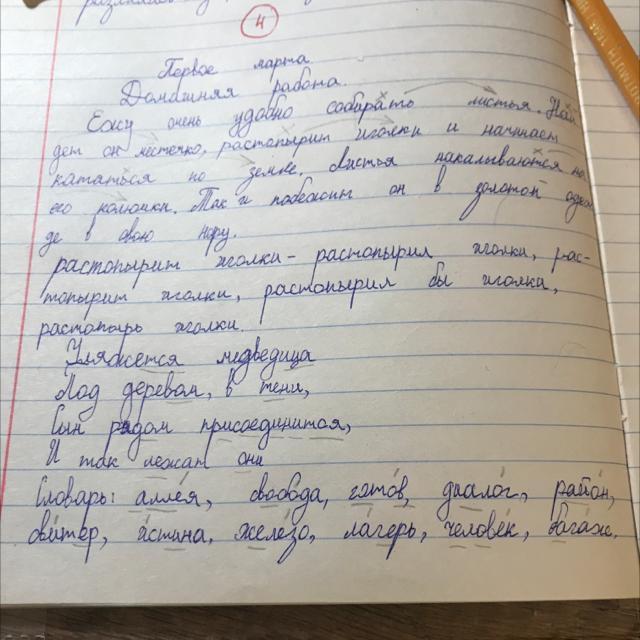 4
Первое марта
Домашняя работа.
Ежу очень удобно собирать листья. Най-
дет он местечко, растопырит иголки и начинает
кататься по земле. Листья накалываются на
его колючки. Так и побежит он в золотой одеж
де в свою нору.
растопырит иголки - растопырил иголки, рас-
топырит иголки, растопырил бы иголки,
растопырь иголки.
Уляжется медведица
Под деревом, в тени,
Сын рядом присоединится,
И так лежат они
Словарь: аллея, свобода, готов, диалог, район,
свитер, истина, железо, лагерь, человек, багаж.